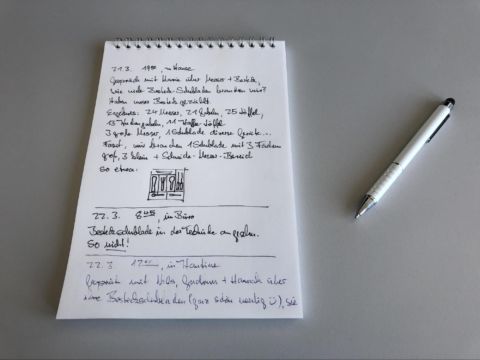 21.3. 19⁰⁰, zu Hause
Gespräch mit über Messer + Besteck,
wie viele Besteck-Schubladen brauchen wir?
Haben unser Besteck gezählt.
Ergebnis: 24 Messer, 21 Gabeln, 25 Löffel,
13 Kuchengabeln, 11 Kaffee-Löffel
3 große Messer, 1 Schublade diverse Geräte...
Fazit, wir brauchen 1 Schublade mit 3 Fächern
groß, 3 klein + Schneide-Messer-Bereich
so etwa:
22.3. 8⁴⁵, in Büro
Besteckschublade in der Teeküche angesehen.
So nicht!
22.3 in Kantine
Gespräch mit + Hannah über
ihre Besteckschubladen (ganz schön